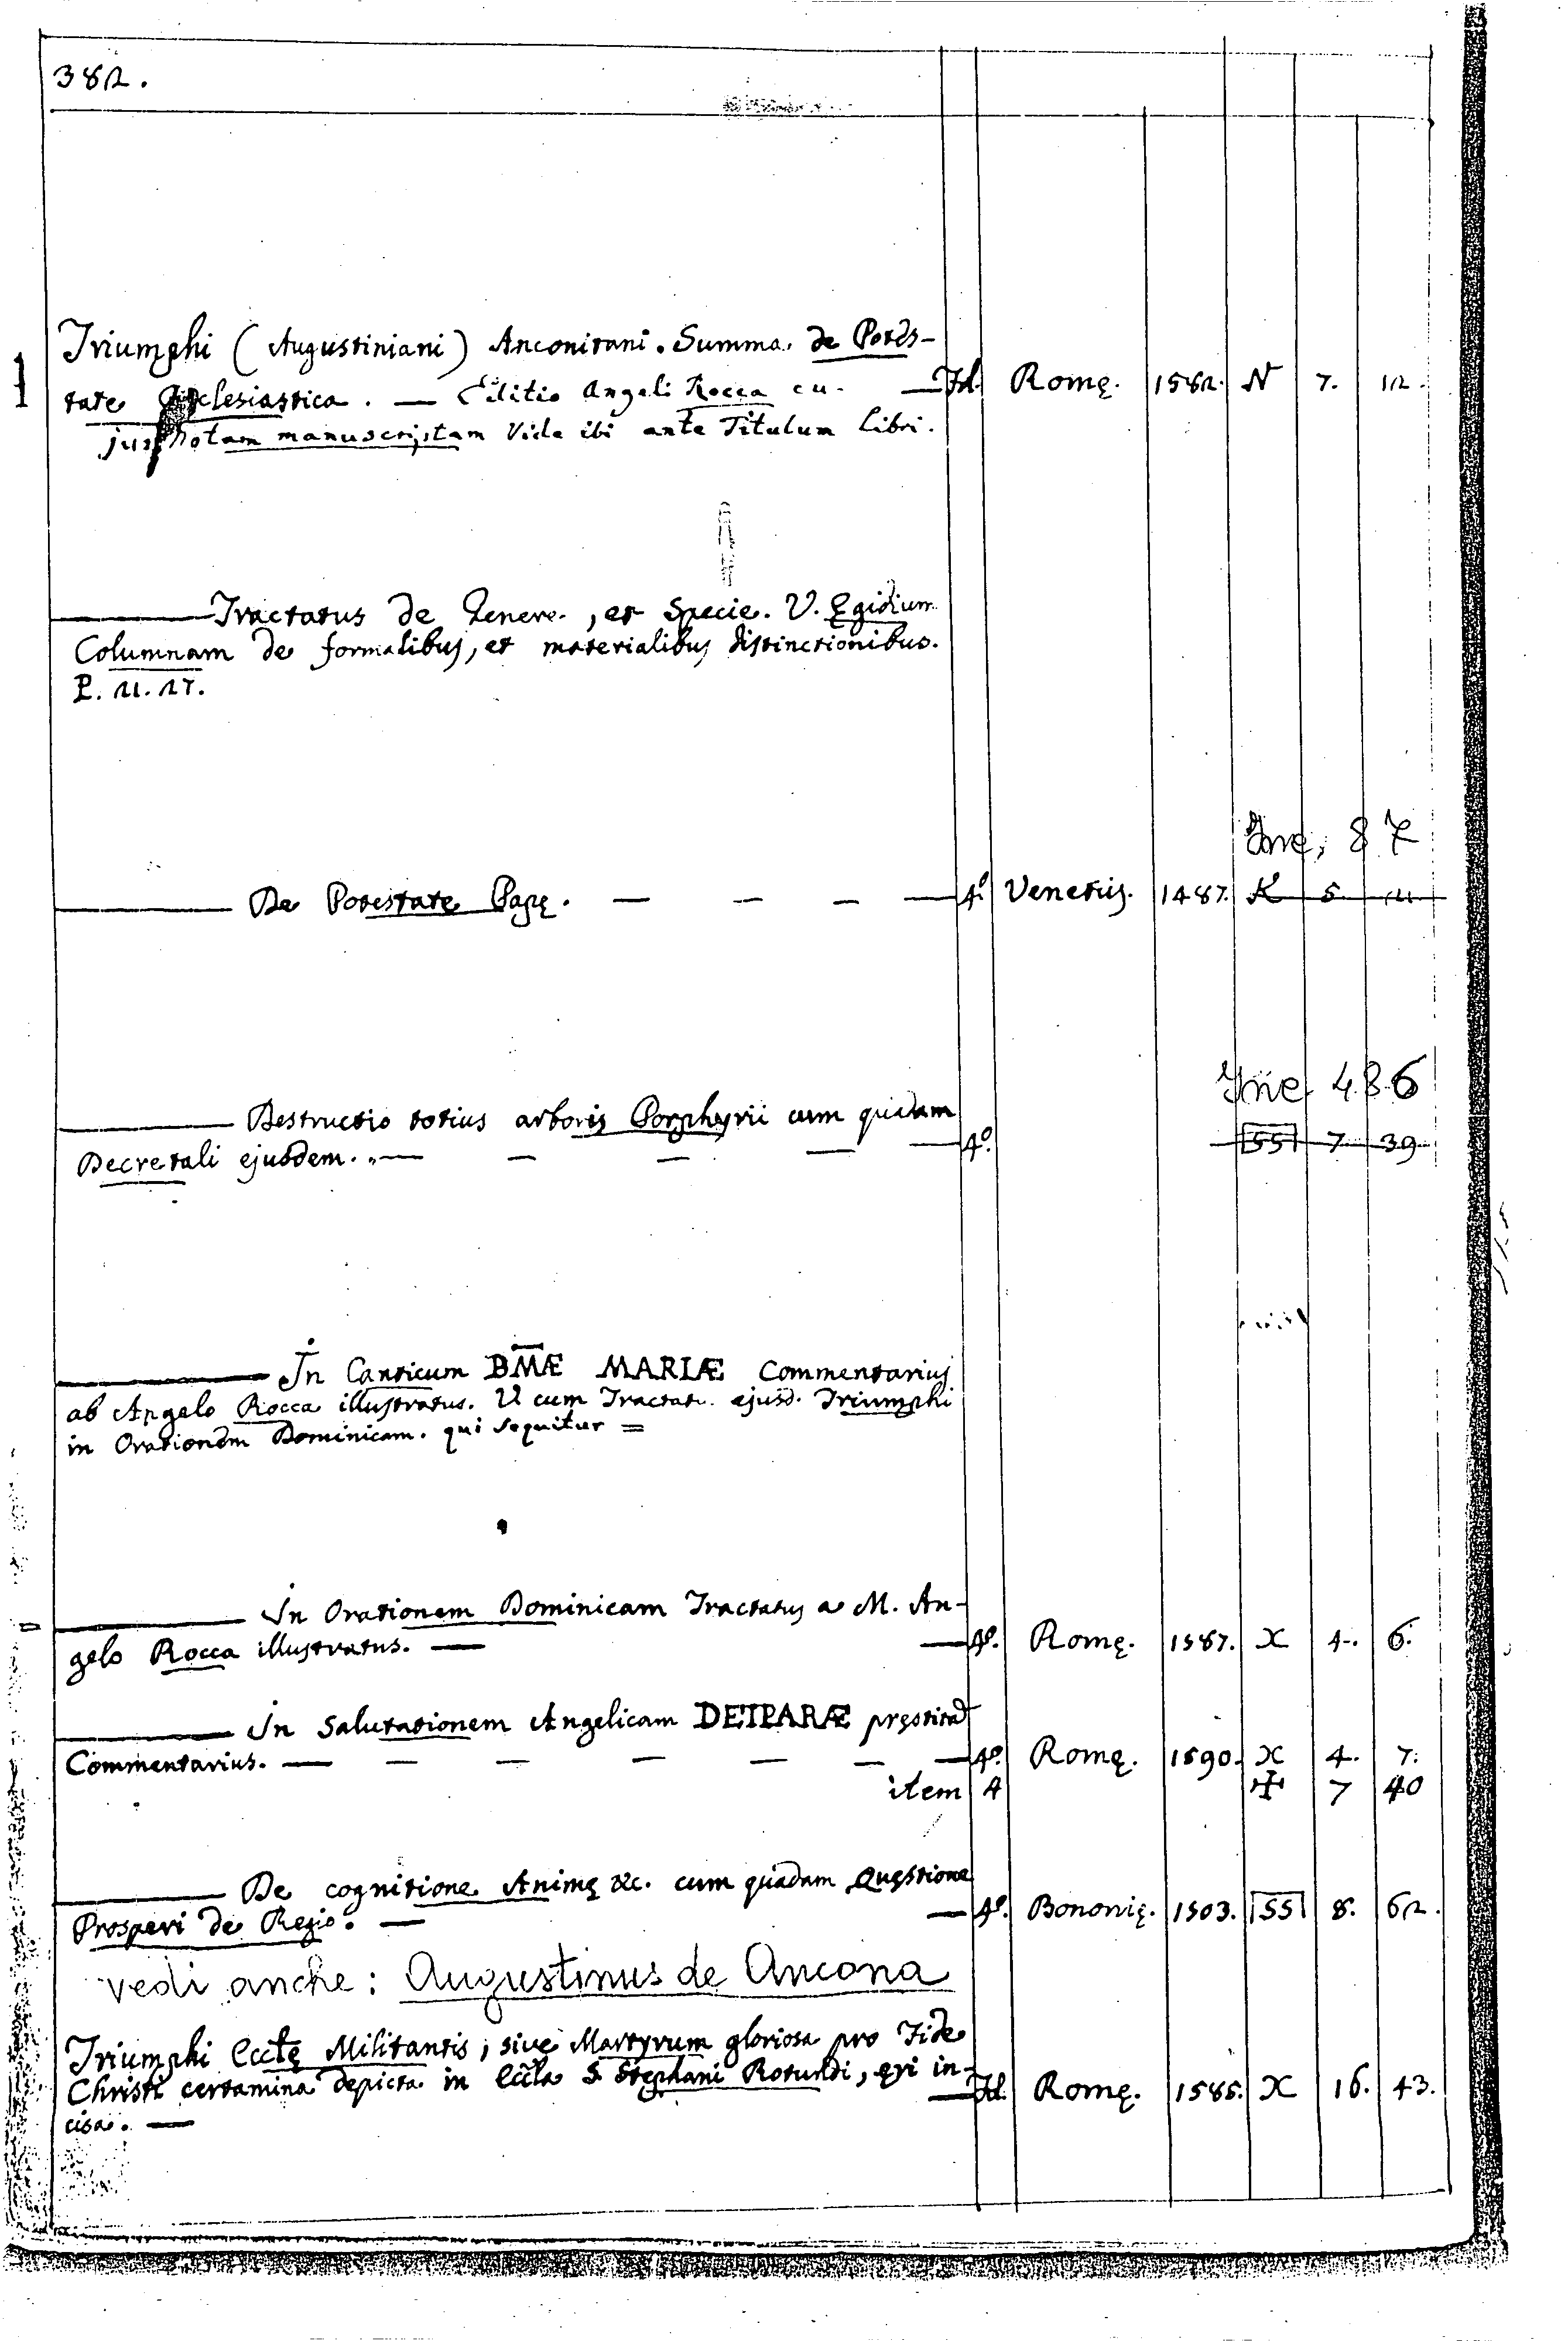 382.
Triumphi (Augustiniani) Anconitani. Summa de Potes-
tate Ecclesiastica. — Editio Angeli Rocca cu- — Fol. Romę. 1582. N 7. 12.
jus notam manuscriptam Vide ibi ante Titulum Libri.
Tractatus de Genere, et Specie. V. Egidium
Columnam de formalibus, et materialibus distinctionibus.
P. 11. 17.
Inc. 87
De Potestate Papę. — — — — 4º Venetiis. 1487. K 5
Inc. 486
Destructio totius arboris Porphyrii cum quadam
Decretali ejusdem. — — — — — 4º. SS 7 39
In Canticum BMÆ MARIÆ Commentarius
ab Angelo Rocca illustratus. V cum Tractatu ejusd. Triumphi
in Orationem Dominicam. qui sequitur =
In Orationem Dominicam Tractatus a M. An-
gelo Rocca illustratus. — — 4º. Romę. 1587. X 4. 6.
In Salutationem Angelicam DEIPARÆ pręstita
Commentarius. — — — — — — — 4º. Romę. 1590. X 4. 7.
item 4 ✠ 7 40
De cognitione Animę &c. cum quadam Quęstione
Prosperi de Regio. — — 4º. Bononię. 1503. SS 8. 62.
vedi anche: Augustinus de Ancona
Triumphi Ecclę Militantis, sive Martyrum gloriosa pro Fide
Christi certamina depicta in Eccla S. Stephani Rotundi, ęri in-
cisa. — — Fol. Romę. 1585. X 16. 43.